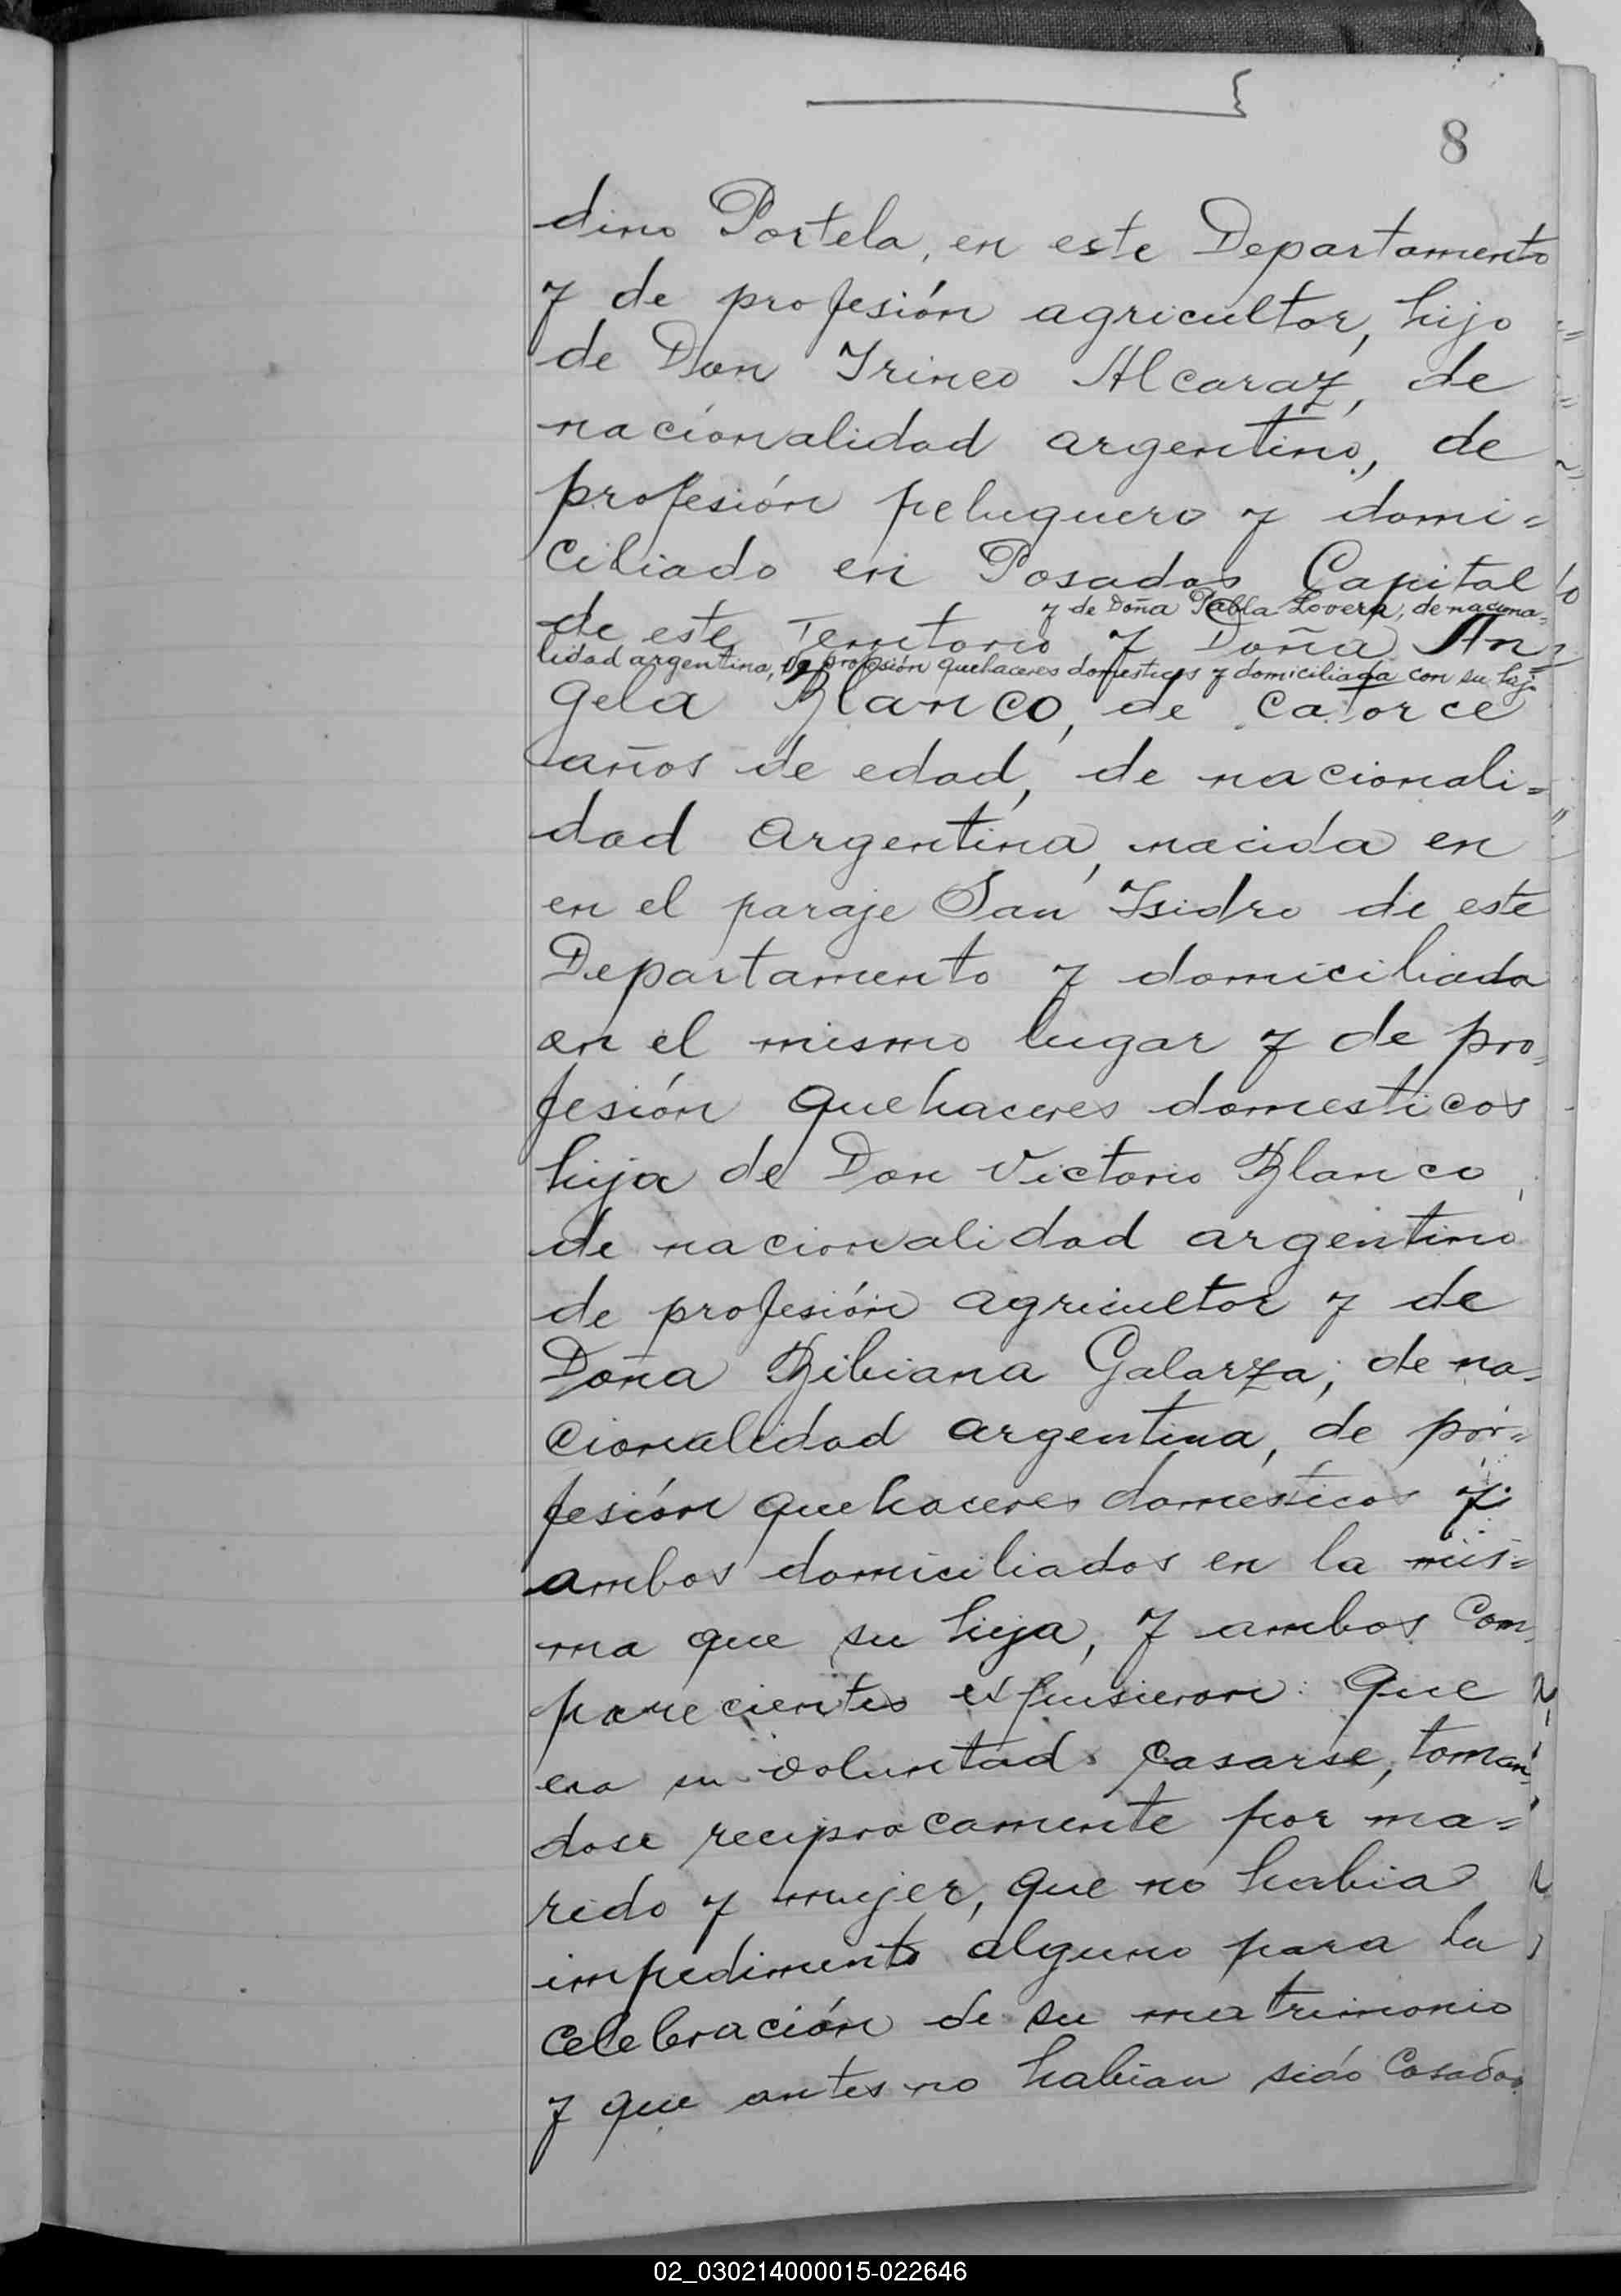 8
dino Portela, en este Departamento
y de profesión agricultor, hijo
de Don Irineo Alcaraz, de
nacionalidad argentino, de
profesión peluquero y domi=
ciliado en Posadas Capital
y de Doña Pabla Lovera, de naciona=
de este Territorio y Doña An=
lidad argentina, de profesión quehaceres domesticos y domiciliada con su hijo
gela Blanco, de catorce
años de edad, de nacionali=
dad argentina, nacida en
en el paraje San Isidro de este
Departamento y domiciliada
en el mismo lugar y de pro=
fesión quehaceres domesticos
hija de Don Victorio Blanco,
de nacionalidad argentino
de profesión agricultor y de
Doña Bibiana Galarza, de na=
cionalidad argentina, de por=
fesión quehaceres domesticos y
ambos domiciliados en la mis=
ma que su hija, y ambos com=
parecientes expusieron: que
era su voluntad casarse, toman=
dose reciprocamente por ma=
rido y mujer, que no habia
impedimento alguno para la
celebración de su matrimonio
y que antes no habian sido casados
02_030214000015-022646